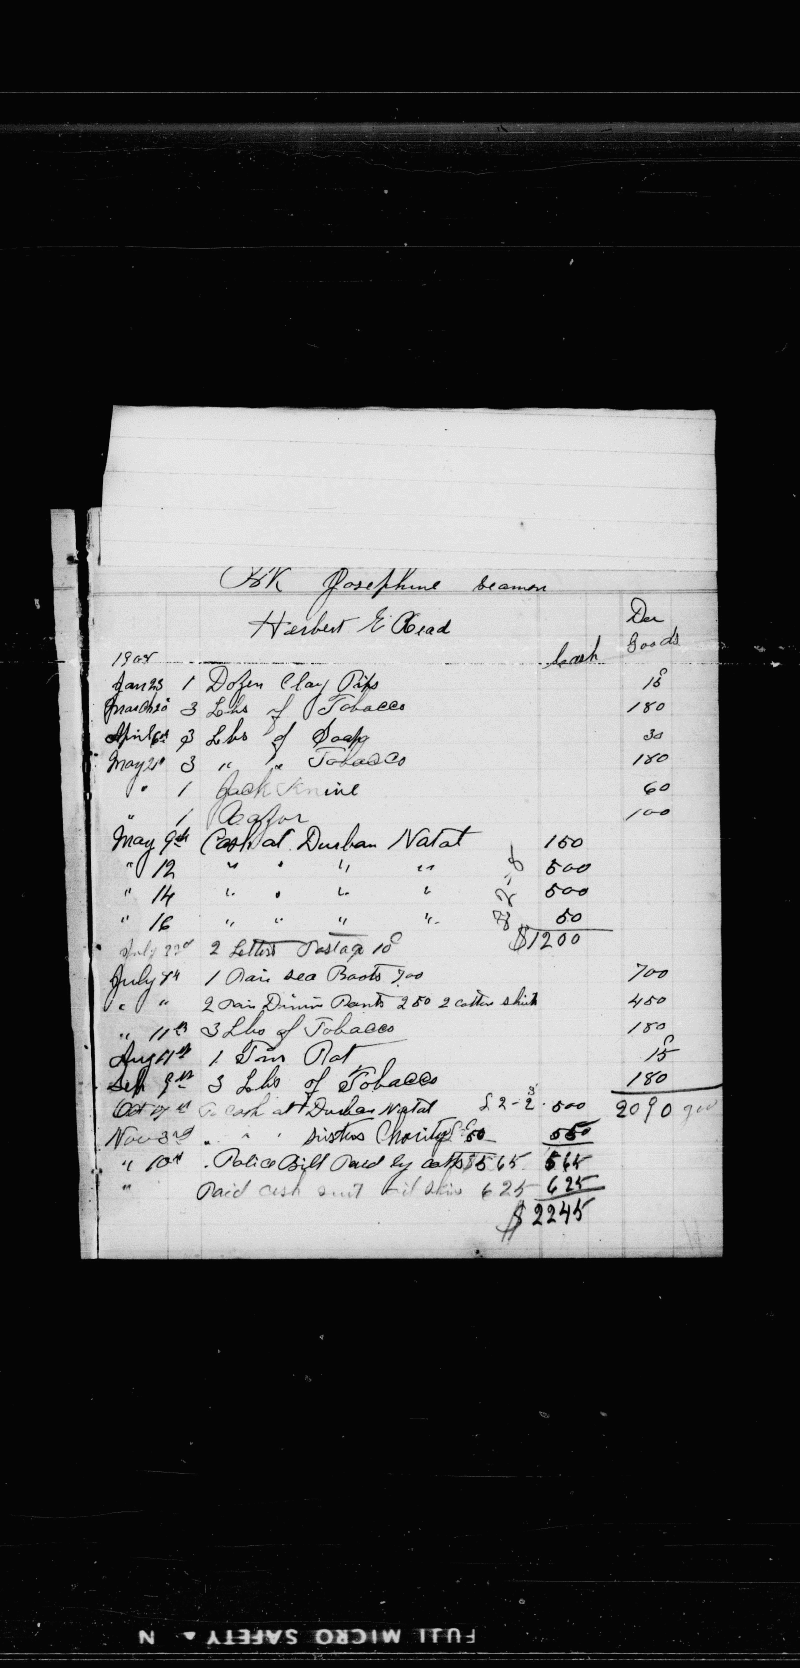 BK Josephine seamen
Herbert E Read
Der
1908 Cash Goods
Jan 23 1 Dozen Clay Pips 15
March 20 3 Lbs of Tobacco 180
April 6 3 Lbs of Soap 30
May 2 3 " " Tobacco 180
" 1 Jack Knive 60
" 1 Razor 100
May 9th Cash at Durban Natal 150
" 12 " " " " 500
" 14 " " " " 500
" 16 " " " " 50
$1200
July 2 Letters Postage 10c
July 1 Pair Sea Boots 700 700
" " 2 Pair Pants 250 2 cotten shirts 450
" 11th 3 Lbs of Tobacco 180
Aug 1 Tin Pot 15
Sep 9 3 Lbs of Tobacco 180
Oct cash at Durban Natal £2-2 500 2090
Nov 3rd " " " Sisters Charity 50 550
" 10th Police Bill Paid by capt $565 565
" Paid cash suit oil skins 625 625
$2245
FUJI MICRO SAFETY N